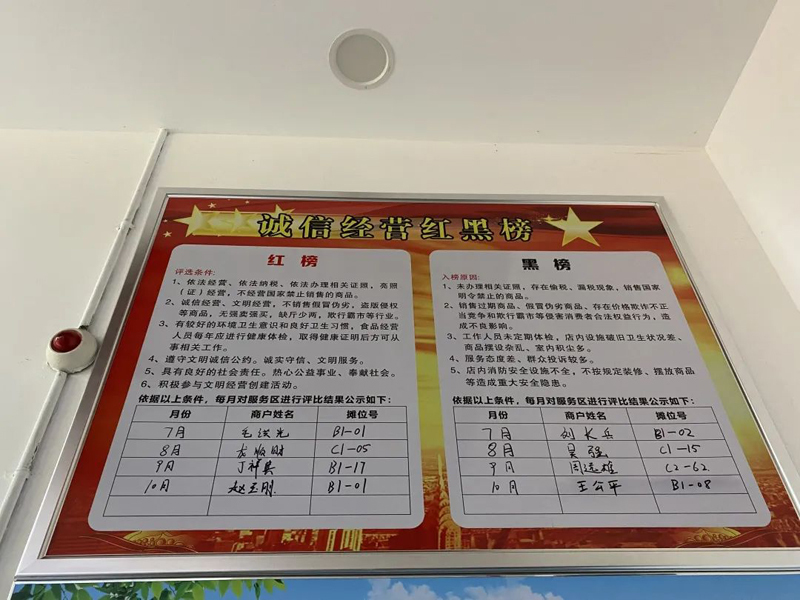 诚信经营红黑榜
红 榜
评选条件:
1、依法经营、依法纳税、依法办理相关证照，亮照
（证）经营，不经营国家禁止销售的商品。
2、诚信经营、文明经营，不销售假冒伪劣，盗版侵权
等商品，无强卖强买，缺斤少两，欺行霸市等行业。
3、有较好的环境卫生意识和良好卫生习惯，食品经营
人员每年应进行健康体检，取得健康证明后方可从
事相关工作。
4、遵守文明诚信公约。诚实守信、文明服务。
5、具有良好的社会责任。热心公益事业、奉献社会。
6、积极参与文明经营创建活动。
依据以上条件，每月对服务区进行评比结果公示如下：
月份 商户姓名 摊位号
7月 B1-01
8月 C1-05
9月 B1-17
10月 B1-01
黑 榜
入榜原因:
1、未办理相关证照，存在偷税、漏税现象，销售国家
明令禁止的商品。
2、销售过期商品、假冒伪劣商品、存在价格欺诈不正
当竞争和欺行霸市等侵害消费者合法权益行为，造
成不良影响。
3、工作人员未定期体检，店内设施破旧卫生状况差、
商品摆设杂乱、室内积尘多。
4、服务态度差、群众投诉较多。
5、店内消防安全设施不全，不按规定装修、摆放商品
等造成重大安全隐患。
依据以上条件，每月对服务区进行评比结果公示如下：
月份 商户姓名 摊位号
7月 刘长兵 B1-02
8月 吴强 C1-15
9月 C2-62
10月 王公平 B1-08